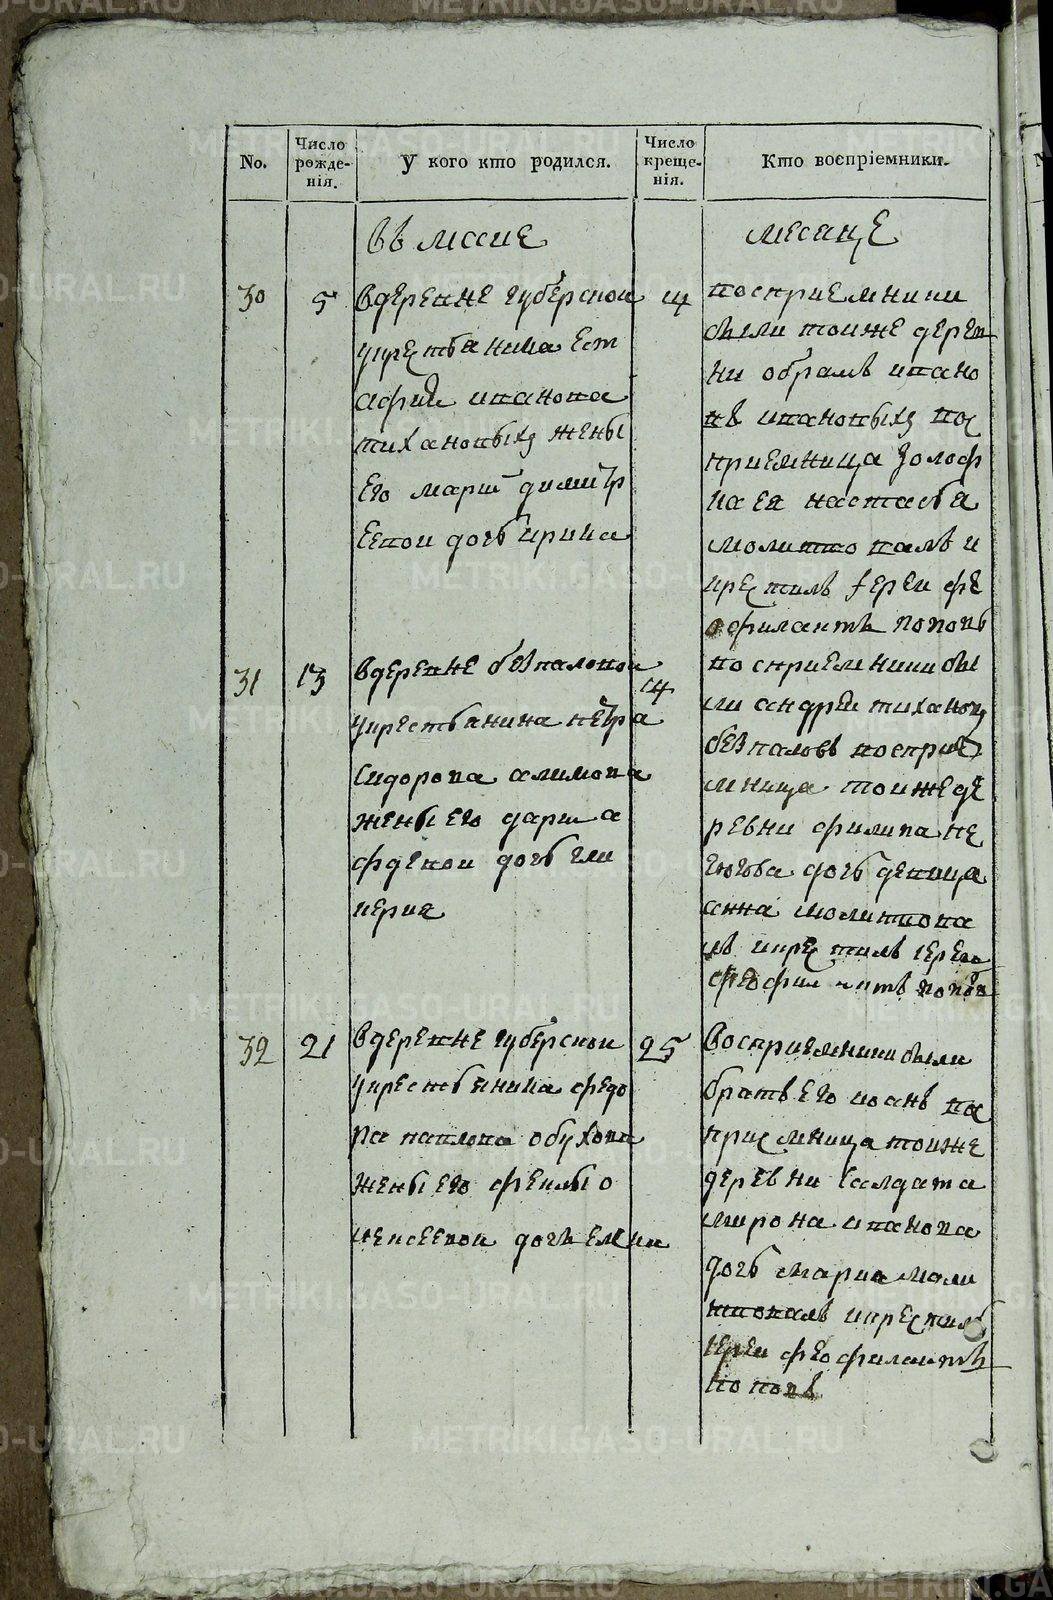 No.
Число рожде-нія.
У кого кто родился.
Число креще-нія.
Кто воспріемники.
въ маие
месяце
30
5
вдеревне губерской
укрестьянина ест
афия иванова
тихановыхъ жены
его марии димитр
еевой дочь ирина
14
восприемники
были тоиже дерев
ни обрамъ ивано
въ ивановыхъ вос
приемница
настасья
молитвовалъ и
крестилъ иереи фе
офилактъ поповъ
31
13
вдеревне безпаловой
укрестьянина петра
сидорова алимова
жены его дарии а
фдевои дочь гли
керия
14
восприемники бы
ли андреи тиханов
безпаловъ восприе
мница тоиже де
ревни филипа
дочь девица
анна молитвова
лъ икрестилъ иереи
феофилактъ поповъ
32
21
вдеревне губерской
укрестьянина федо
ра павлова обухова
жены его феклы о
дочь елена
25
Восприемники были
братъ его иоанъ во
сприемница тоиже
деревни салдата
мирона иванова
дочь мария моли
твовалъ икрестилъ
иереи феофилактъ
поповъ
METRIKI.GASO-URAL.RU